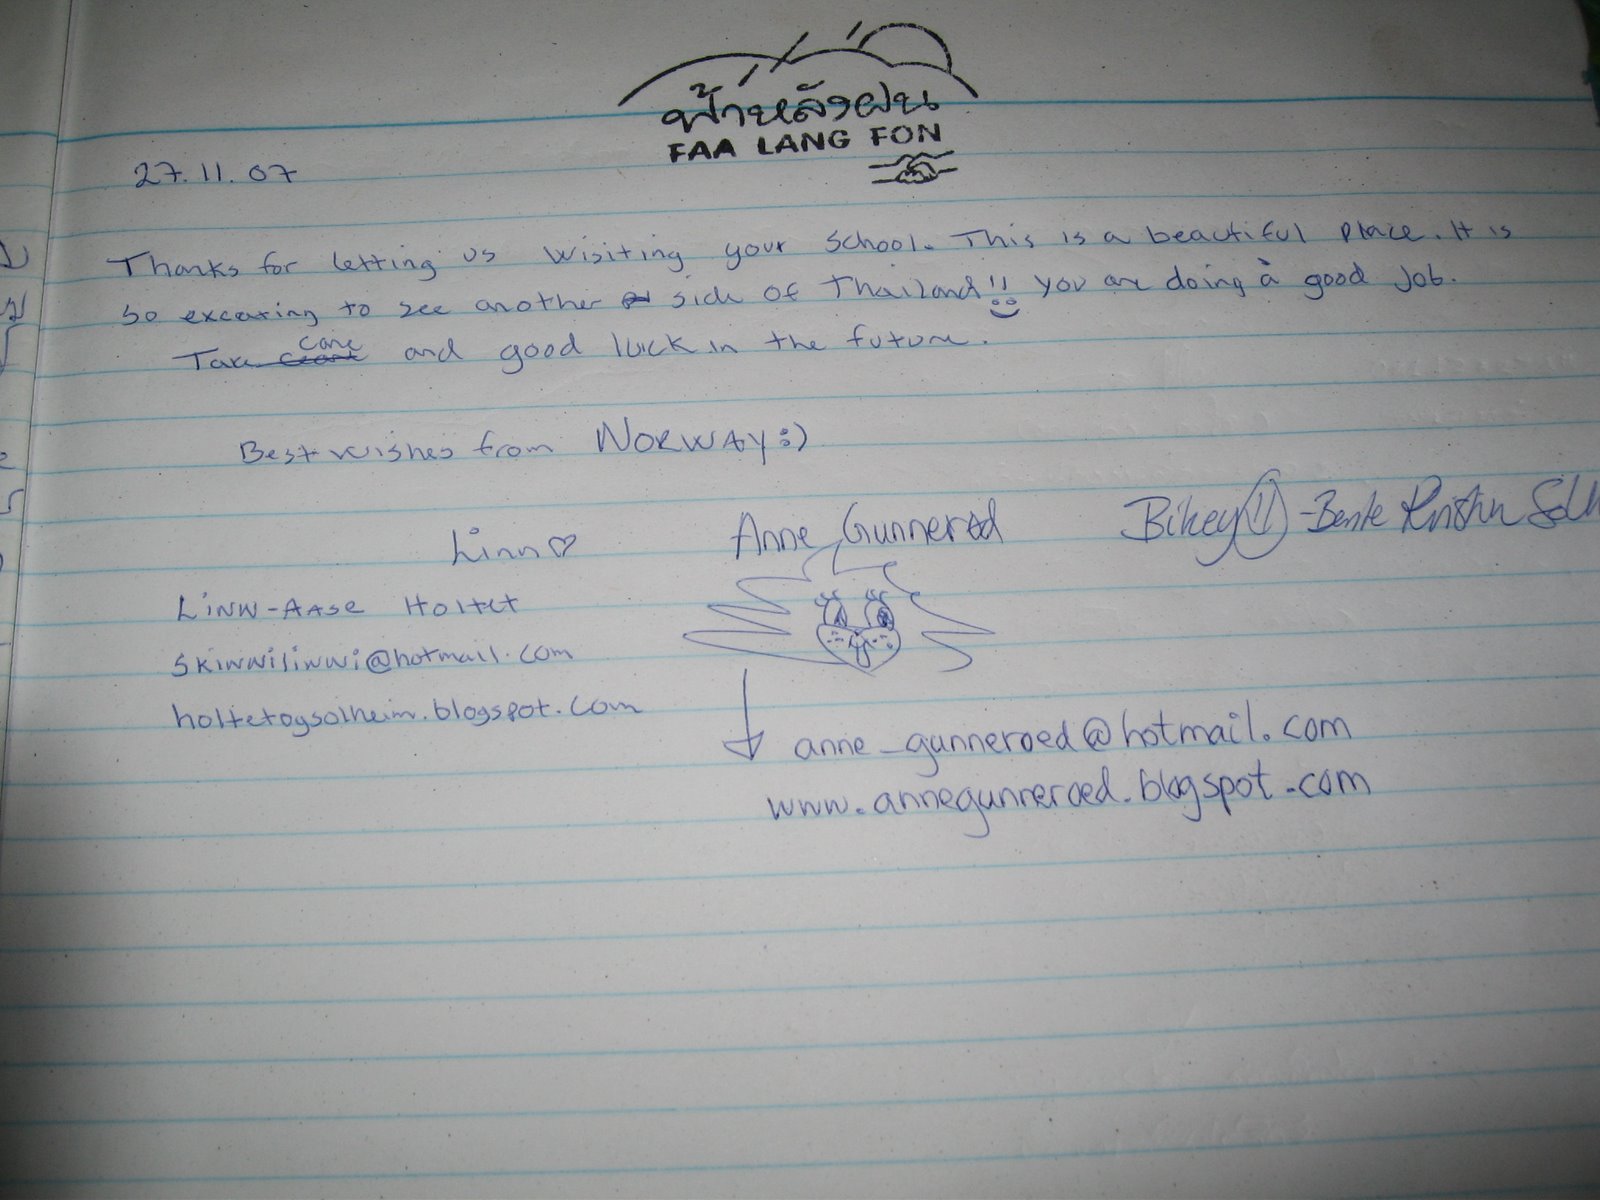 ฟ้าหลังฝน
FAA LANG FON
27.11.07
Thanks for letting us wisiting your school. This is a beautiful place. It is
so excearing to see another side of Thailand!! you are doing a good job.
Take care and good luck in the future.
Best wishes from NORWAY :)
Linn♡
Anne Gunnerød
Bikey - Bente Kristin
LINN-AASE HOLTET
skinnilinni@hotmail.com
holtetogsolheim.blogspot.com
anne_gunneroed@hotmail.com
www.annegunneroed.blogspot.com